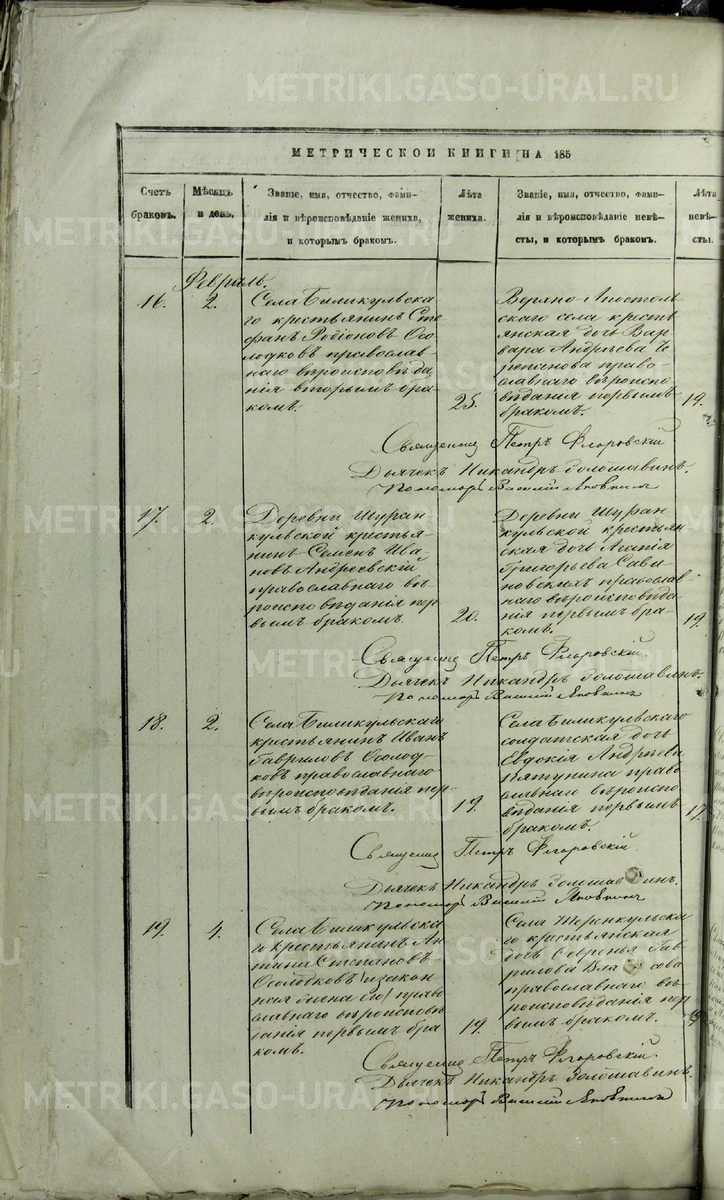 МЕТРИЧЕСКОЙ КНИГИ НА 185
Счетъ браковъ.
Мѣсяцъ и день.
Званіе, имя, отчество, фами-
лія и вѣроисповѣданіе жениха,
и которымъ бракомъ.
Лѣта жениха.
Званіе, имя, отчество, фами-
лія и вѣроисповѣданіе невѣ-
сты, и которымъ бракомъ.
Лѣта невѣ-
сты.
Февраль.
16.
2.
Села Биликульска
го крестьянинъ Сте
фанъ Родіоновъ Осо
лодковъ православ-
наго вѣроисповѣда
нія вторымъ бра-
комъ.
25.
Верхно-Апостоль
скаго села кресть
янская дочь Вар
вара Андреева
право-
славнаго вѣроиспо
вѣданія первымъ
бракомъ.
19.
Священникъ Петръ Флоровскій
Дьячекъ Никандръ Золошавинъ.
Пономарь Василій Яковкинъ
17.
2.
Деревни Шуран-
кульской крестья
нинъ Семенъ Ива
новъ Андреевскій
православнаго вѣ
роисповѣданія пер
вымъ бракомъ.
20.
Деревни Шуран
кульской крестьян
ская дочь Агапія
Григорьева Сави
новскихъ православ
наго вѣроисповѣда
нія первымъ бра-
комъ.
19.
Священникъ Петръ Флоровскій.
Дьячекъ Никандръ Золошавинъ.
Пономарь Василій Яковкинъ
18.
2.
Села Биликульскаго
крестьянинъ Иванъ
Гавриловъ Осолод-
ковъ православнаго
вѣроисповѣданія пер
вымъ бракомъ.
19.
Села Биликульскаго
солдатская дочь
Евдокія Андреева
Пятунина право
славнаго вѣроиспо
вѣданія первымъ
бракомъ.
17.
Священникъ Петръ Флоровскій.
Дьячекъ Никандръ Золошавинъ.
Пономарь Василій Яковкинъ
19.
4.
Села Биликульска
го крестьянинъ Ан
типа Степановъ
Осолодковъ
право
славнаго вѣроисповѣ
данія первымъ бра
комъ.
19.
Села Теренкульска
го крестьянская
дочь Февронья Гав
рилова
православнаго вѣ-
роисповѣданія пер
вымъ бракомъ.
19.
Священникъ Петръ Флоровскій.
Дьячекъ Никандръ Золошавинъ.
Пономарь Василій Яковкинъ
METRIKI.GASO-URAL.RU